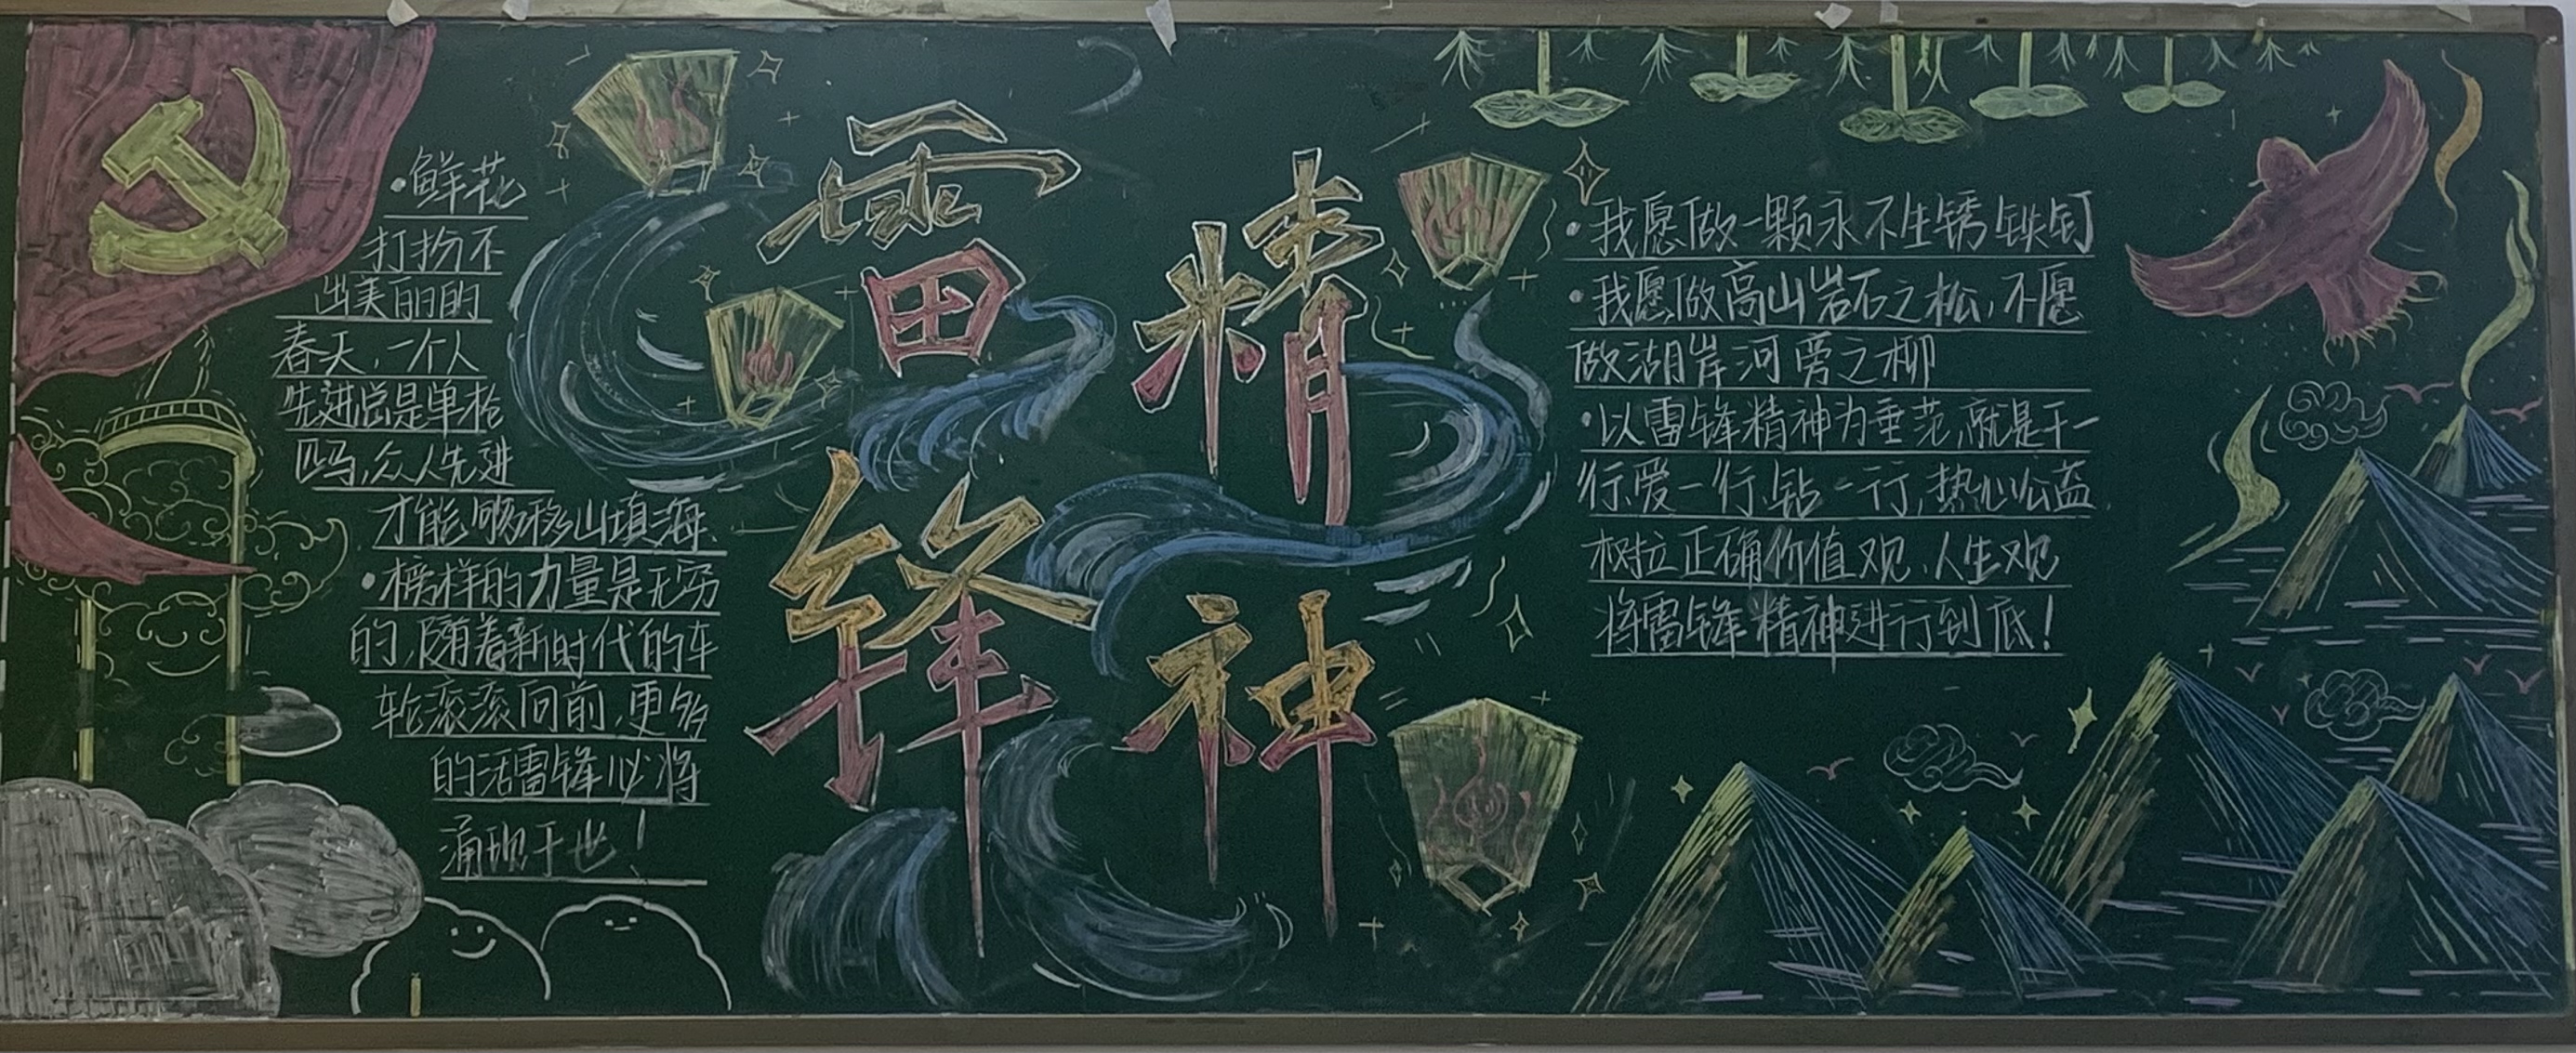 ·鲜花
打扮不
出美丽的
春天,一个人
先进总是单枪
匹马,众人先进
才能够移山填海.
·榜样的力量是无穷
的,随着新时代的车
轮滚滚向前,更多
的活雷锋必将
涌现于世!
雷
锋
精
神
·我愿做一颗永不生锈铁钉
·我愿做高山岩石之松,不愿
做湖岸河旁之柳
·以雷锋精神为垂范,就是干一
行、爱一行、钻一行,热心公益
树立正确价值观、人生观
将雷锋精神进行到底!